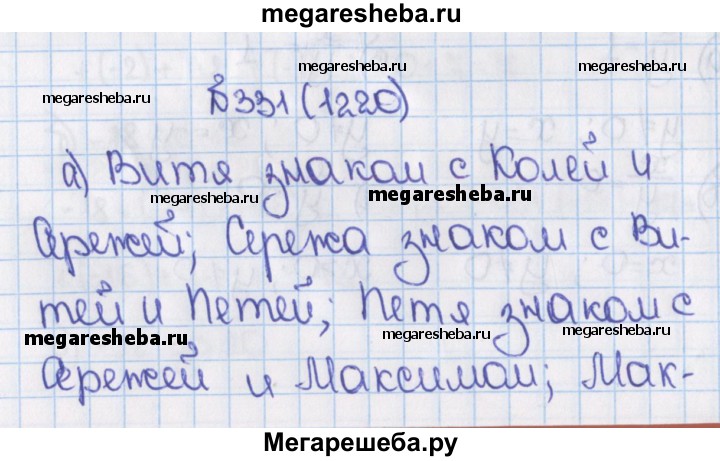 megaresheba.ru
megaresheba.ru № 331 (1220) megaresheba.ru
а) Витя знаком с Колей и
megaresheba.ru megaresheba.ru megaresheba.ru
Сережей; Сережа знаком с Ви-
тей и Петей; Петя знаком с
megaresheba.ru megaresheba.ru megaresheba.ru
Сережей и Максимом; Мак-
Мегарешеба.ру